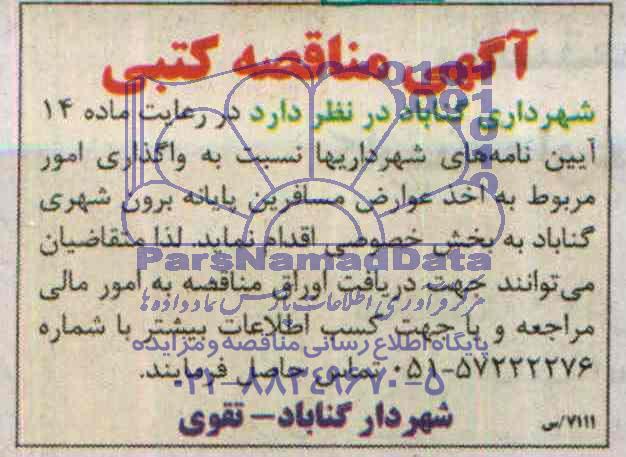 آگهی مناقصه کتبی
شهرداری گناباد در نظر دارد در رعایت ماده ۱۴
آیین نامه‌های شهرداریها نسبت به واگذاری امور
مربوط به اخذ عوارض مسافرین پایانه برون شهری
گناباد به بخش خصوصی اقدام نماید. لذا متقاضیان
ParsNamadData
می‌توانند جهت دریافت اوراق مناقصه به امور مالی
مرکز فرآوری اطلاعات پارس نماد داده‌ها
مراجعه و یا جهت کسب اطلاعات بیشتر با شماره
پایگاه اطلاع رسانی مناقصه و مزایده
۰۵۱-۵۷۲۲۲۲۷۶ تماس حاصل فرمایند.
۰۲۱-۸۸۳۴۹۶۷۰-۵
شهردار گناباد – تقوی
۷۱۱۱/س